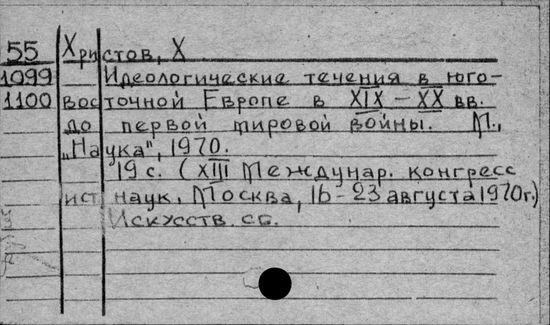 55 Христов, Х
1099 Идеологические течения в юго-
1100 восточной Европе в XIX – XX вв.
до первой мировой войны. М.,
„Наука", 1970.
19 с. (XIII Междунар. конгресс
ист. наук. Москва, 16-23 августа 1970г.)
Искусств. сб.